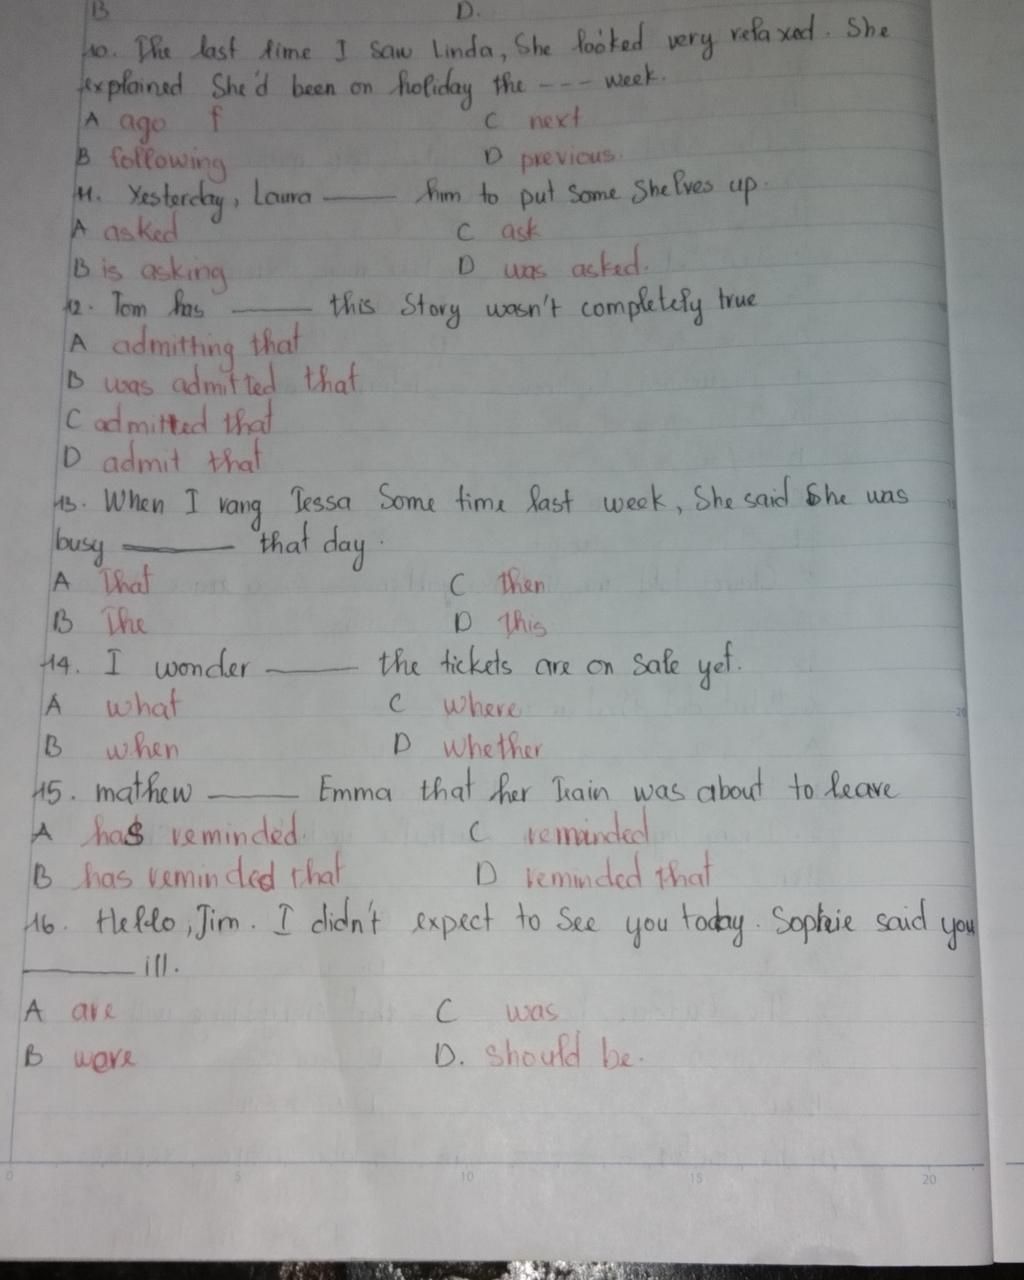 B D.
10. The last time I saw Linda, She looked very relaxed. She
explained She'd been on holiday the --- week.
A ago f C next
B following D previous.
11. Yesterday, Laura ___ him to put some Shelves up.
A asked C ask
B is asking D was asked.
12. Tom has ___ this Story wasn't completely true
A admitting that
B was admitted that
C admitted that
D admit that
13. When I rang Tessa Some time last week, She said She was
busy ___ that day.
A That C then
B The D this
14. I wonder ___ the tickets are on sale yet.
A what C where
B when D whether
15. mathew ___ Emma that her train was about to leave
A has reminded. C reminded
B has reminded that D reminded that
16. Hello, Jim. I didn't expect to See you today. Sophie said you
___ ill.
A are C was
B were D. should be.
0 5 10 15 20